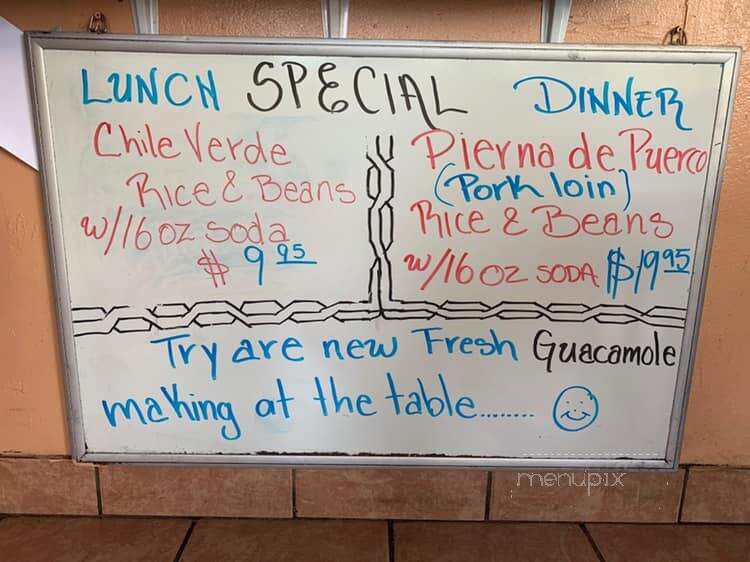 LUNCH SPECIAL DINNER
Chile Verde
Rice & Beans
w/16 oz soda
$ 9 95
Pierna de Puerco
(Pork loin)
Rice & Beans
w/16 oz SODA $19 95
Try are new Fresh Guacamole
making at the table........
menupix